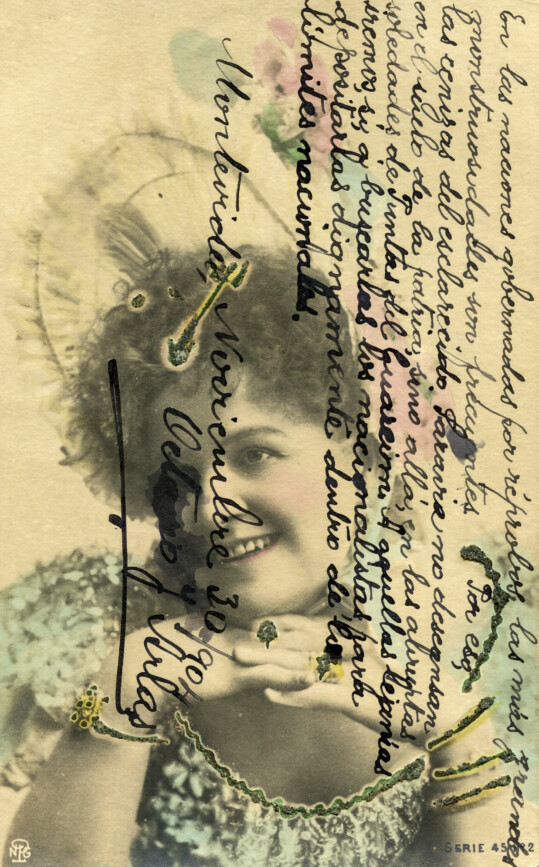 En las naciones gobernadas por réprobos las más grandes
monstruosidades son frecuentes. Por eso,
las cenizas del esclarecido Saravia no descansan
en el suelo de la patria, sino allá, en las abruptas
soledades de Santas del A aquellas lejanías
iremos, si, a buscarlas los nacionalistas para
depositarlas dignamente dentro de los
límites nacionales.
Montevideo, Noviembre 30/904
Octavio
NPG
SERIE 45 2